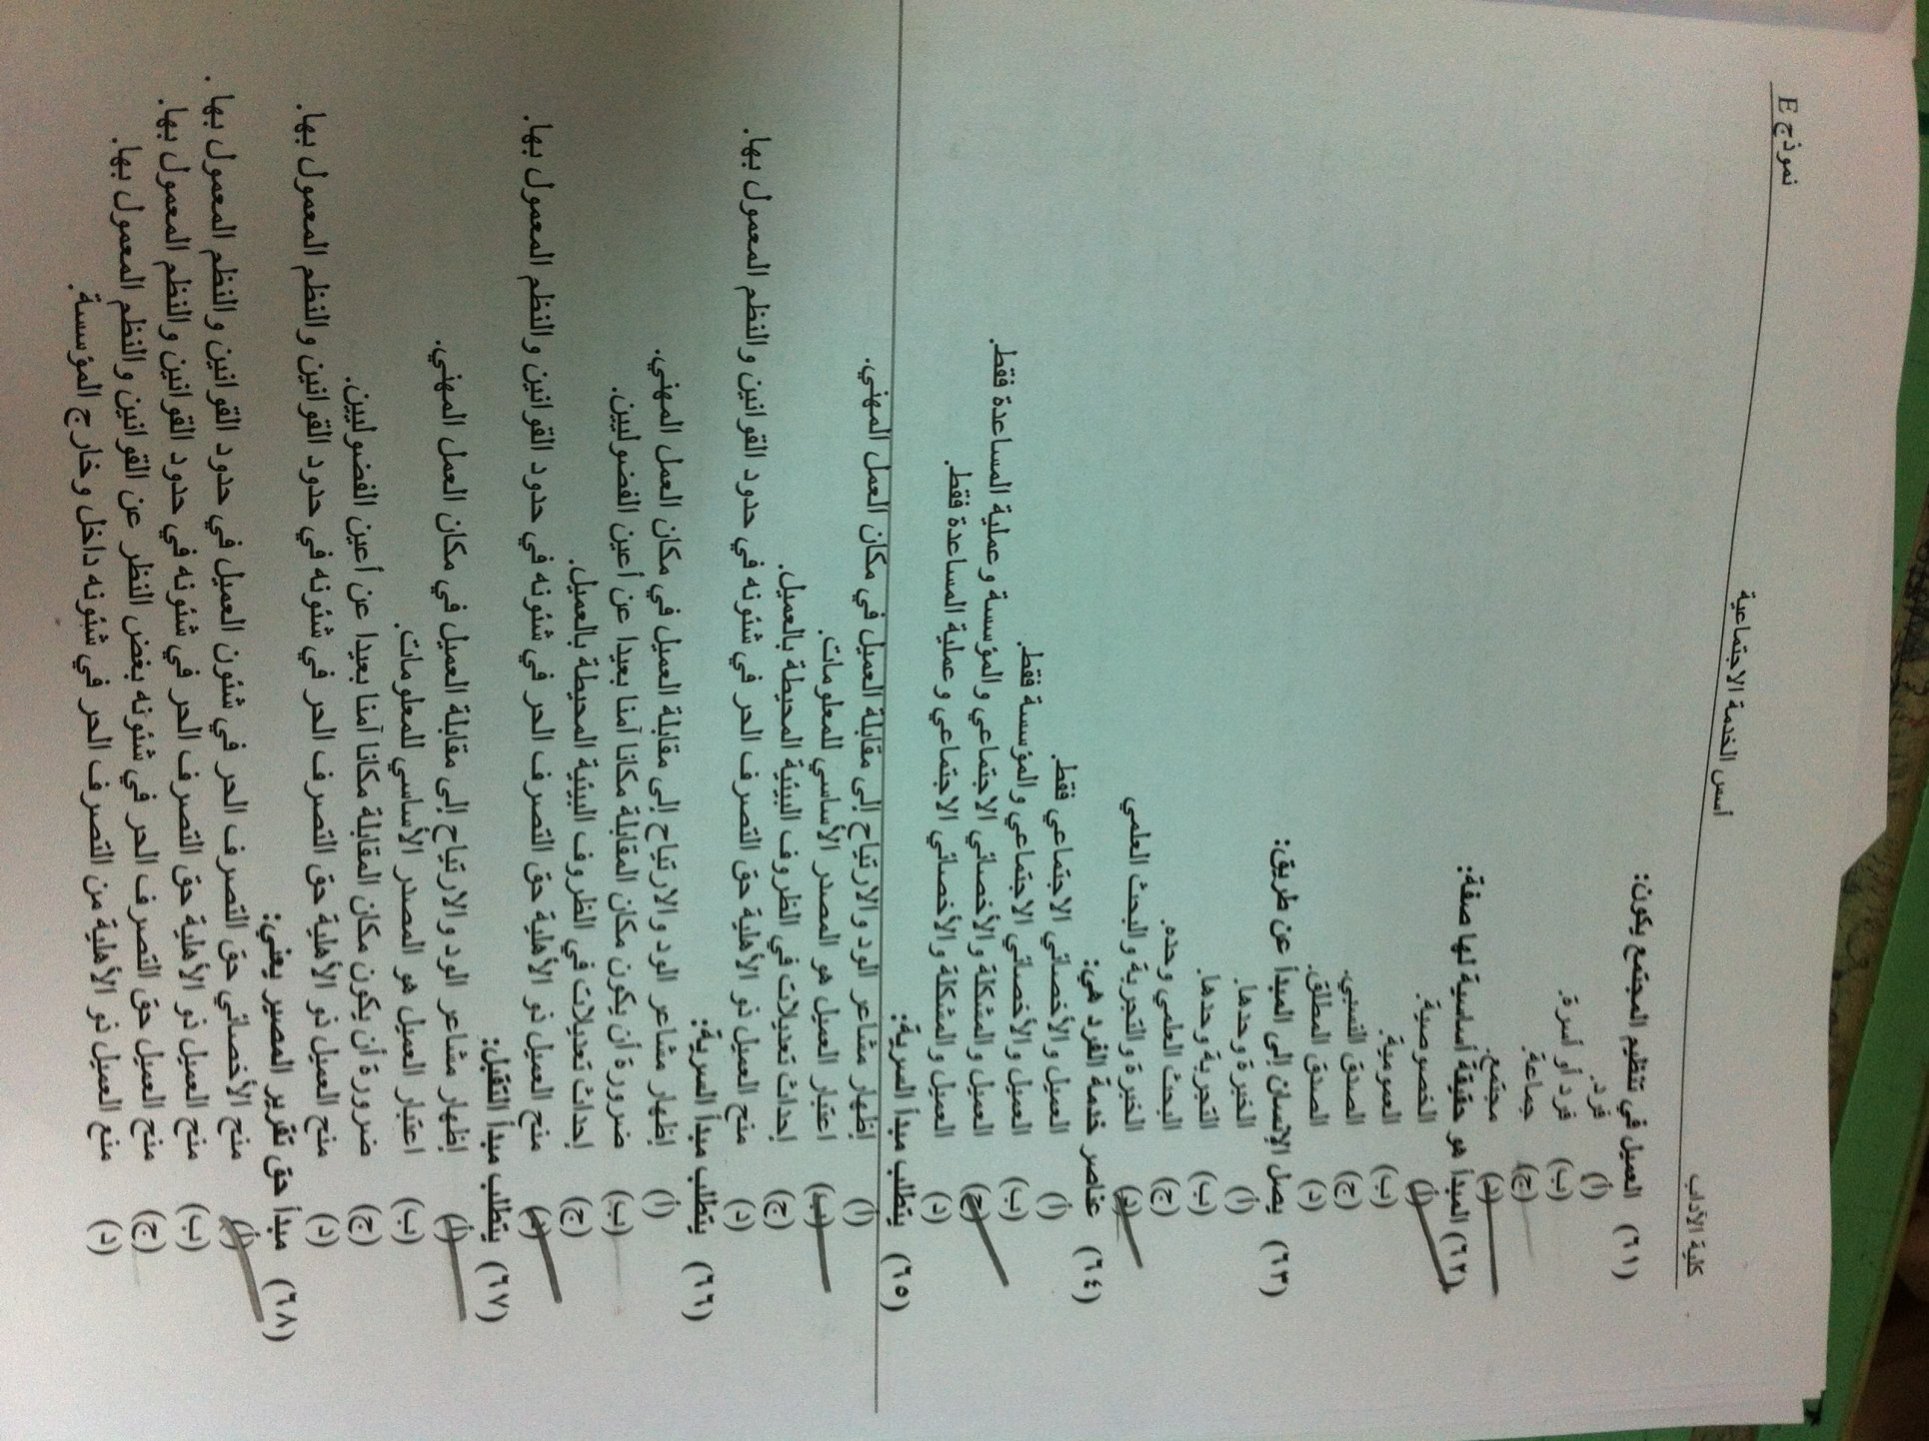 كلية الآداب أسس الخدمة الاجتماعية نموذج E
(٦١) العميل في تنظيم المجتمع يكون:
(أ) فرد.
(ب) فرد أو أسرة.
(ج) جماعة.
(د) مجتمع.
(٦٢) المبدأ هو حقيقة أساسية لها صفة:
(أ) الخصوصية.
(ب) العمومية.
(ج) الصدق النسبي.
(د) الصدق المطلق.
(٦٣) يصل الإنسان إلى المبدأ عن طريق:
(أ) الخبرة وحدها.
(ب) التجربة وحدها.
(ج) البحث العلمي وحده.
(د) الخبرة والتجربة والبحث العلمي
(٦٤) عناصر خدمة الفرد هي:
(أ) العميل والأخصائي الاجتماعي فقط.
(ب) العميل والأخصائي الاجتماعي والمؤسسة فقط.
(ج) العميل والمشكلة والأخصائي الاجتماعي والمؤسسة وعملية المساعدة فقط.
(د) العميل والمشكلة والأخصائي الاجتماعي وعملية المساعدة فقط.
(٦٥) يتطلب مبدأ السرية:
(أ) إظهار مشاعر الود والارتياح إلى مقابلة العميل في مكان العمل المهني.
(ب) اعتبار العميل هو المصدر الأساسي للمعلومات.
(ج) إحداث تعديلات في الظروف البيئية المحيطة بالعميل.
(د) منح العميل ذو الأهلية حق التصرف الحر في شئونه في حدود القوانين والنظم المعمول بها.
(٦٦) يتطلب مبدأ السرية:
(أ) إظهار مشاعر الود والارتياح إلى مقابلة العميل في مكان العمل المهني.
(ب) ضرورة أن يكون مكان المقابلة مكانا آمنا بعيدا عن أعين الفضوليين.
(ج) إحداث تعديلات في الظروف البيئية المحيطة بالعميل.
(د) منح العميل ذو الأهلية حق التصرف الحر في شئونه في حدود القوانين والنظم المعمول بها.
(٦٧) يتطلب مبدأ التقبل:
(أ) إظهار مشاعر الود والارتياح إلى مقابلة العميل في مكان العمل المهني.
(ب) اعتبار العميل هو المصدر الأساسي للمعلومات.
(ج) ضرورة أن يكون مكان المقابلة مكانا آمنا بعيدا عن أعين الفضوليين.
(د) منح العميل ذو الأهلية حق التصرف الحر في شئونه في حدود القوانين والنظم المعمول بها.
(٦٨) مبدأ حق تقرير المصير يعني:
(أ) منح الأخصائي حق التصرف الحر في شئون العميل في حدود القوانين والنظم المعمول بها .
(ب) منح العميل ذو الأهلية حق التصرف الحر في شئونه في حدود القوانين والنظم المعمول بها.
(ج) منح العميل حق التصرف الحر في شئونه بغض النظر عن القوانين والنظم المعمول بها.
(د) منع العميل ذو الأهلية من التصرف الحر في شئونه داخل وخارج المؤسسة.